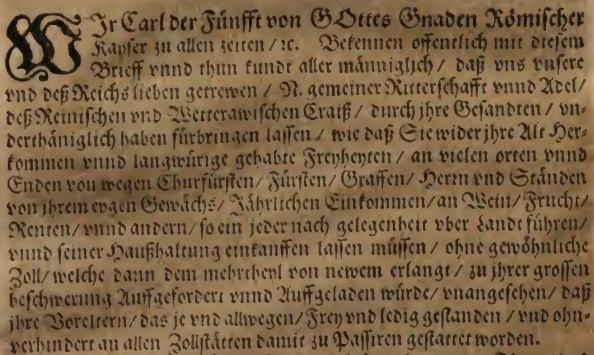 WJr Carl der Fünfft von GOttes Gnaden Römischer
Kayser zu allen zeiten / ꝛc. Bekennen offentlich mit diesem
Brieff vnnd thun kundt aller männiglich / daß vns vnsere
vnd deß Reichs lieben getrewen / N. gemeiner Ritterschafft vnnd Adel /
deß Reinischen vnd Wetterawischen Craiß / durch jhre Gesandten / vn-
derthäniglich haben fürbringen lassen / wie daß Sie wider jhre Alt Her-
kommen vnnd langwürige gehabte Freyheyten / an vielen orten vnnd
Enden von wegen Churfürsten / Fürsten / Graffen / Herrn vnd Ständen
von jhrem eygen Gewächs / Jährlichen Einkommen / an Wein / Frucht /
Renten / vnnd andern / so ein jeder nach gelegenheit vber Landt führen /
vnnd seiner Haußhaltung einkauffen lassen müssen / ohne gewöhnliche
Zoll / welche dann dem mehrtheyl von newem erlangt / zu jhrer grossen
beschwerung Auffgefordert vnnd Auffgeladen würde / vnangesehen / daß
jhre Voreltern / das je vnd allwegen / Frey vnd ledig gestanden / vnd ohn-
verhindert an allen Zollstätten damit zu Passiren gestattet worden.